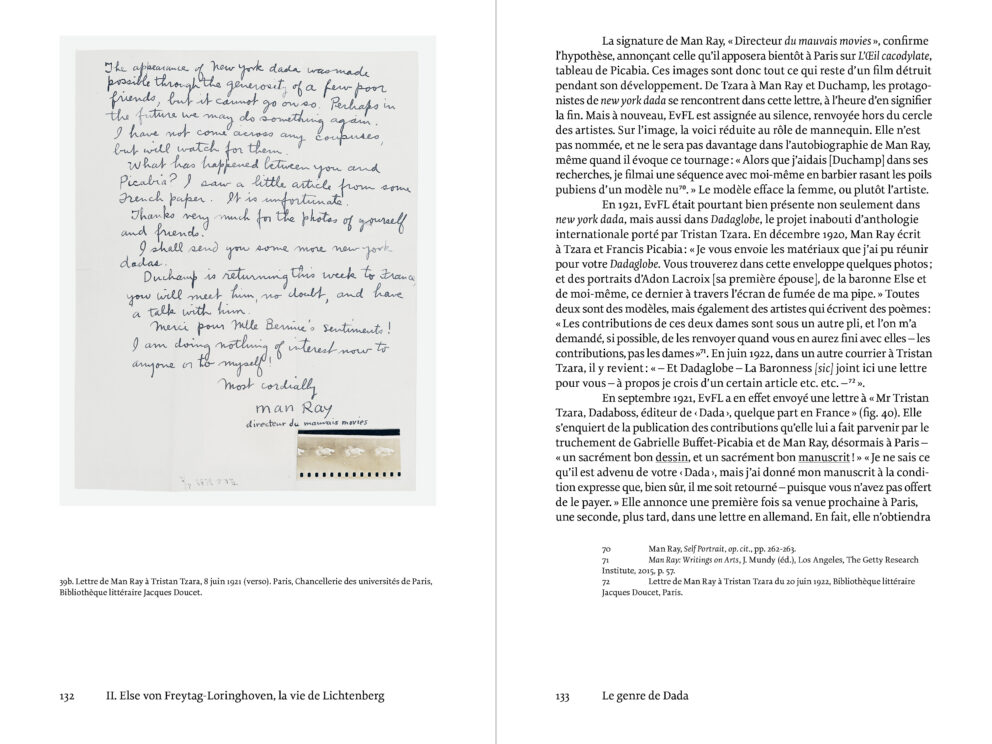 The appearance of New York dada was made
possible through the generosity of a few poor
friends, but it cannot go on so. Perhaps in
the future we may do something again.
I have not come across any coupures,
but will watch for them.
What has happened between you and
Picabia? I saw a little article from some
French paper. It is unfortunate.
Thanks very much for the photos of yourself
and friends.
I shall send you some more new york
dadas.
Duchamp is returning this week to France
you will meet him, no doubt, and have
a talk with him.
Merci pour Mlle sentiments!
I am doing nothing of interest now to
anyone or to myself!
Most cordially
man Ray
directeur du mauvais movies
39b. Lettre de Man Ray à Tristan Tzara, 8 juin 1921 (verso). Paris, Chancellerie des universités de Paris,
Bibliothèque littéraire Jacques Doucet.
132 II. Else von Freytag-Loringhoven, la vie de Lichtenberg
La signature de Man Ray, « Directeur du mauvais movies », confirme
l’hypothèse, annonçant celle qu’il apposera bientôt à Paris sur L’Œil cacodylate,
tableau de Picabia. Ces images sont donc tout ce qui reste d’un film détruit
pendant son développement. De Tzara à Man Ray et Duchamp, les protago-
nistes de new york dada se rencontrent dans cette lettre, à l’heure d’en signifier
la fin. Mais à nouveau, EvFL est assignée au silence, renvoyée hors du cercle
des artistes. Sur l’image, la voici réduite au rôle de mannequin. Elle n’est
pas nommée, et ne le sera pas davantage dans l’autobiographie de Man Ray,
même quand il évoque ce tournage : « Alors que j’aidais [Duchamp] dans ses
recherches, je filmai une séquence avec moi-même en barbier rasant les poils
pubiens d’un modèle nu70. » Le modèle efface la femme, ou plutôt l’artiste.
En 1921, EvFL était pourtant bien présente non seulement dans
new york dada, mais aussi dans Dadaglobe, le projet inabouti d’anthologie
internationale porté par Tristan Tzara. En décembre 1920, Man Ray écrit
à Tzara et Francis Picabia : « Je vous envoie les matériaux que j’ai pu réunir
pour votre Dadaglobe. Vous trouverez dans cette enveloppe quelques photos ;
et des portraits d’Adon Lacroix [sa première épouse], de la baronne Else et
de moi-même, ce dernier à travers l’écran de fumée de ma pipe. » Toutes
deux sont des modèles, mais également des artistes qui écrivent des poèmes :
« Les contributions de ces deux dames sont sous un autre pli, et l’on m’a
demandé, si possible, de les renvoyer quand vous en aurez fini avec elles – les
contributions, pas les dames »71. En juin 1922, dans un autre courrier à Tristan
Tzara, il y revient : « – Et Dadaglobe – La Baronness [sic] joint ici une lettre
pour vous – à propos je crois d’un certain article etc. etc. –72 ».
En septembre 1921, EvFL a en effet envoyé une lettre à « Mr Tristan
Tzara, Dadaboss, éditeur de ‹ Dada ›, quelque part en France » (fig. 40). Elle
s’enquiert de la publication des contributions qu’elle lui a fait parvenir par le
truchement de Gabrielle Buffet-Picabia et de Man Ray, désormais à Paris –
« un sacrément bon dessin, et un sacrément bon manuscrit ! » « Je ne sais ce
qu’il est advenu de votre ‹ Dada ›, mais j’ai donné mon manuscrit à la condi-
tion expresse que, bien sûr, il me soit retourné – puisque vous n’avez pas offert
de le payer. » Elle annonce une première fois sa venue prochaine à Paris,
une seconde, plus tard, dans une lettre en allemand. En fait, elle n’obtiendra
70 Man Ray, Self Portrait, op. cit., pp. 262-263.
71 Man Ray: Writings on Arts, J. Mundy (éd.), Los Angeles, The Getty Research
Institute, 2015, p. 57.
72 Lettre de Man Ray à Tristan Tzara du 20 juin 1922, Bibliothèque littéraire
Jacques Doucet, Paris.
133 Le genre de Dada